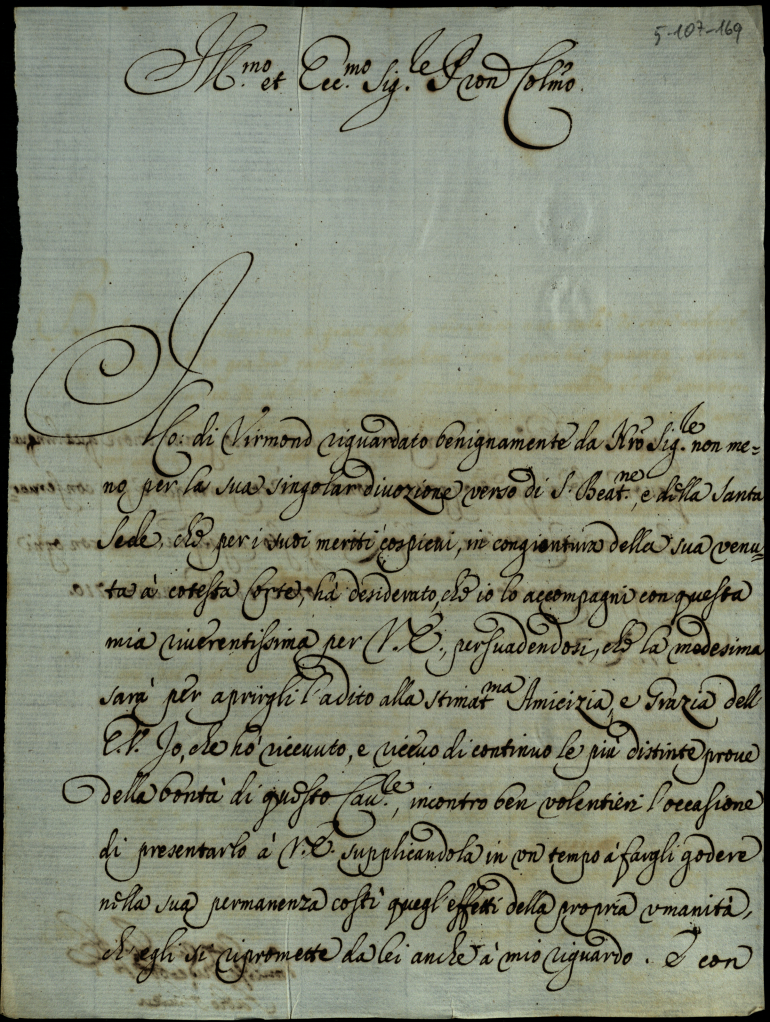 5-107-169
Ill.mo et Ecc.mo Sig.re Pron Colmo.
Il Co: di Virmond riguardato benignamente da Nro Sig.re non me=
no per la sua singolar divozione verso di S. Beat.ne, e della Santa
Sede, che per i suoi meriti cospicui, in congiontura della sua venu=
ta à cotesta Corte, há desiderato, che io lo accompagni con questa
mia riverentissima per V.E., persuadendosi, che la medesima
sarà per aprirgli l'adito alla stimat.ma Amicizia, e Grazia dell'
E.V. Io, che hò ricevuto, e ricevo di continuo le più distinte prove
della bontà di questo Cav.re, incontro ben volentieri l'occasione
di presentarlo à V.E. supplicandola in un tempo à fargli godere
nella sua permanenza costì quegl'effetti della propria umanità,
ch'egli si ripromette da lei anche à mio riguardo. E con